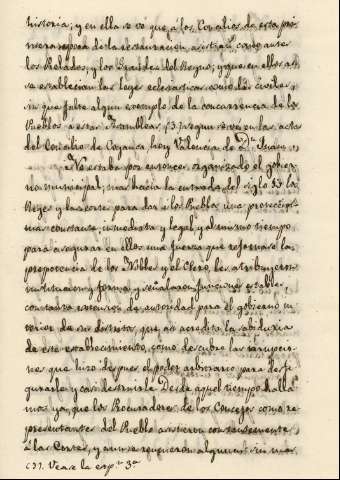 historia; y en ella se ve que a los Concilios de esta pri
mera epoca de la restauracion, asistian, como antes
los Prelados, y los Grandes del Reyno; y que en ellos asi
se establecian las leyes eclesiasticas como las civiles,
sin que falte algun exemplo de la concurrencia de los
Pueblos a estas Asambleas (3) segun se vé en las actas
del Concilio de Coyanca, hoy Valencia de Dn. Juan.
No estaba por entonces organizado el gobier
no municipal; mas hacia la entrada del siglo 13 los
Reyes y las cortes para dar a los Pueblos una proteccion
mas constante, inmediata y legal, y al mismo tiempo
para asegurar en ellos una fuerza que refrenase la
prepotencia de los Nobles y el Clero, les atribuyeron
institucion y forma, y señalaron funciones estables,
constante extension de autoridad para el gobierno in
terior de sus distritos, que no acredita la sabiduria
de este establecimiento, como descubre las irrupcio
nes que hizo despues el poder arbitrario para desfi
gurarle y casi destruirle. Desde aquel tiempo halla
mos ya que los Procuradores de los Concejos como re
presentantes del Pueblo asistieron constantemente
á las Cortes, y aun se requirieron algunas sin mas
(3). Vease la esp.n 3ª